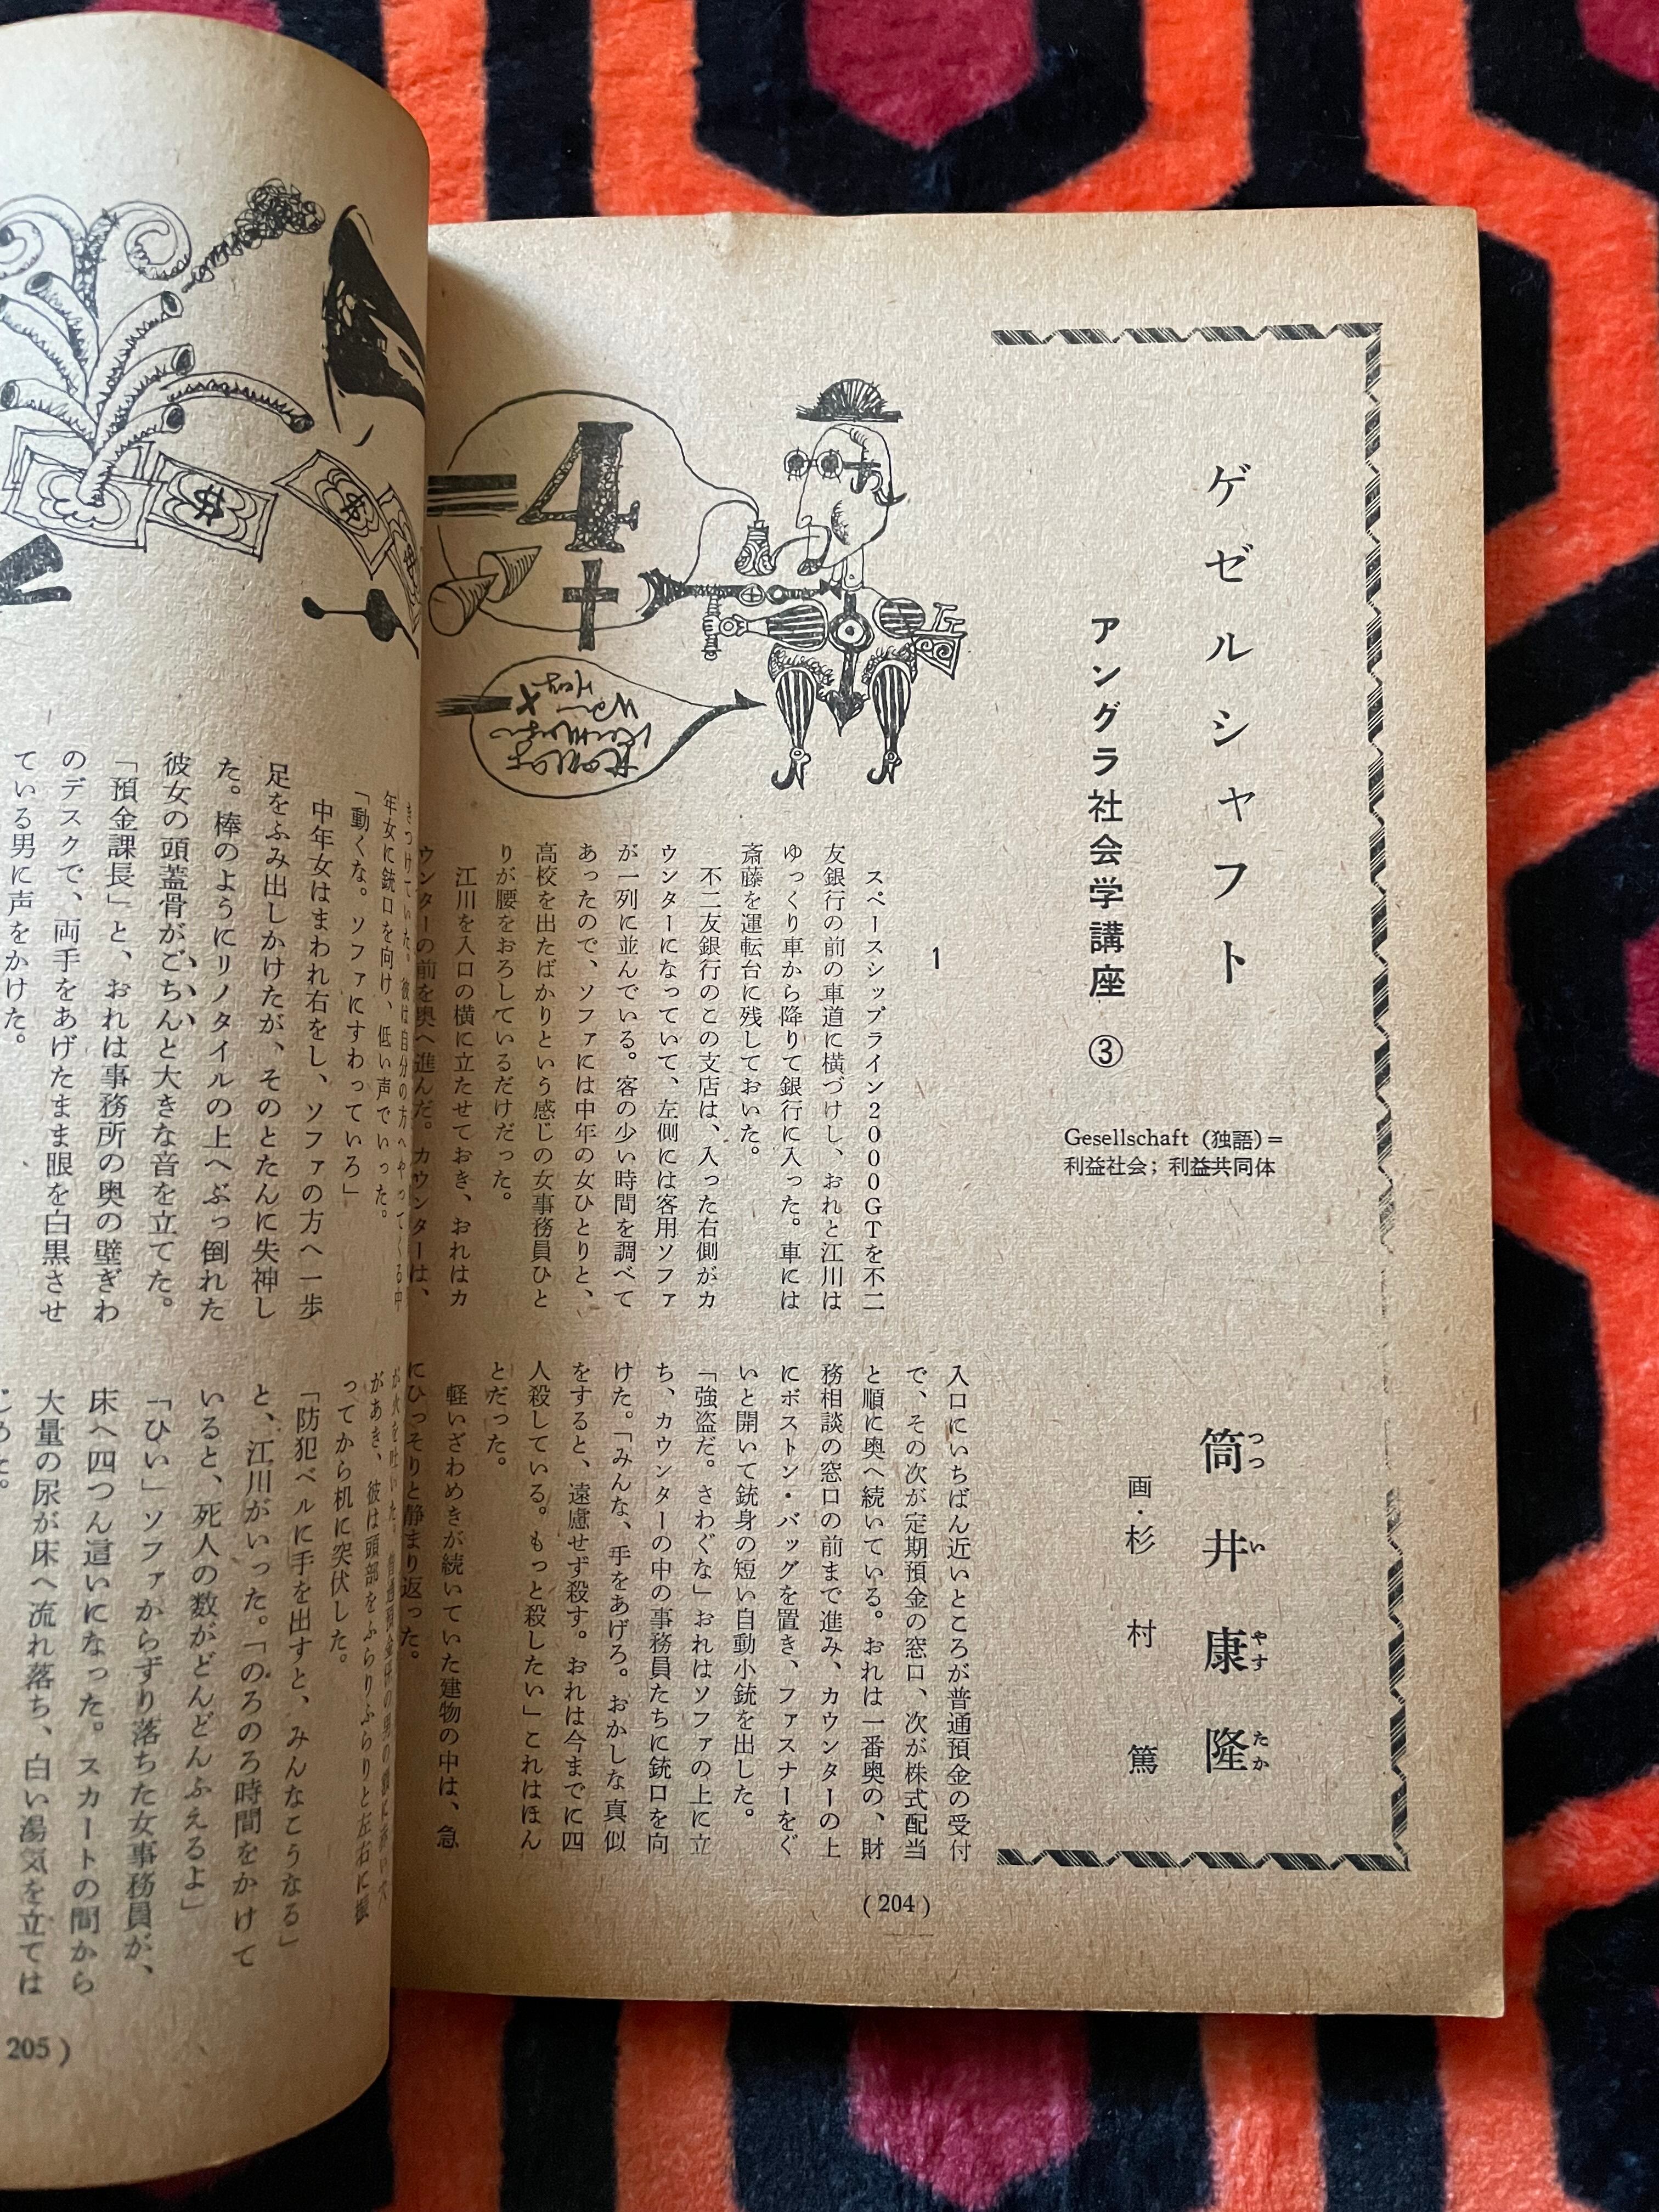 ゲゼルシャフト
アングラ社会学講座 ③
Gesellschaft (独語)=
利益社会; 利益共同体
筒井康隆
つつ い やす たか
画・杉村篤
1
スペースシップライン2000GTを不二
友銀行の前の車道に横づけし、おれと江川は
ゆっくり車から降りて銀行に入った。車には
斎藤を運転台に残しておいた。
不二友銀行のこの支店は、入った右側がカ
ウンターになっていて、左側には客用ソファ
が一列に並んでいる。客の少い時間を調べて
あったので、ソファには中年の女ひとりと、
高校を出たばかりという感じの女事務員ひと
りが腰をおろしているだけだった。
江川を入口の横に立たせておき、おれはカ
ウンターの前を奥へ進んだ。カウンターは、
入口にいちばん近いところが普通預金の受付
で、その次が定期預金の窓口、次が株式配当
と順に奥へ続いている。おれは一番奥の、財
務相談の窓口の前まで進み、カウンターの上
にボストン・バッグを置き、ファスナーをぐ
いと開いて銃身の短い自動小銃を出した。
「強盗だ。さわぐな」おれはソファの上に立
ち、カウンターの中の事務員たちに銃口を向
けた。「みんな、手をあげろ。おかしな真似
をすると、遠慮せず殺す。おれは今までに四
人殺している。もっと殺したい」これはほん
とだった。
軽いざわめきが続いていた建物の中は、急
にひっそりと静まり返った。
(204)
きつけていた。彼は自分の方へやってくる中
年女に銃口を向け、低い声でいった。
「動くな。ソファにすわっていろ」
中年女はまわれ右をし、ソファの方へ一歩
足をふみ出しかけたが、そのとたんに失神し
た。棒のようにリノタイルの上へぶっ倒れた
彼女の頭蓋骨がごちんと大きな音を立てた。
「預金課長」と、おれは事務所の奥の壁ぎわ
のデスクで、両手をあげたまま眼を白黒させ
ている男に声をかけた。
が火を吐いた。普通預金係の男の額に赤い穴
があき、彼は頭部をふらりふらりと左右に振
ってから机に突伏した。
「防犯ベルに手を出すと、みんなこうなる」
と、江川がいった。「のろのろ時間をかけて
いると、死人の数がどんどんふえるよ」
「ひい」ソファからずり落ちた女事務員が、
床へ四つん這いになった。スカートの間から
大量の尿が床へ流れ落ち、白い湯気を立ては
じめた。
205)